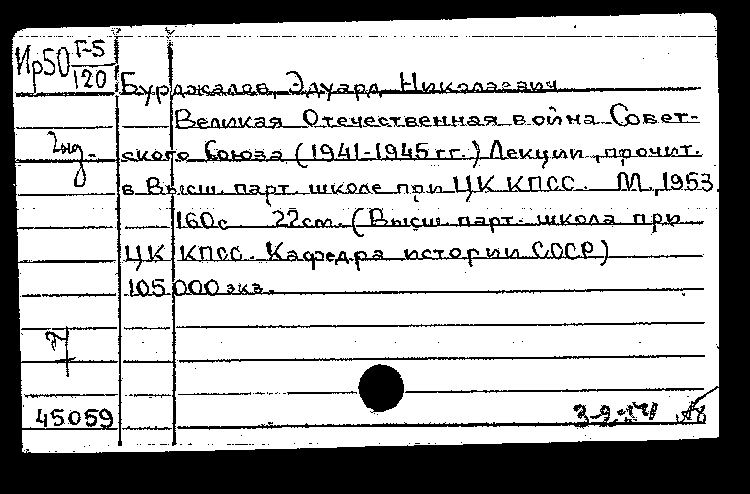 Ир50 Г-5
120
Бурджалов, Эдуард Николаевич
Великая Отечественная война Совет-
ского Союза (1941-1945 гг.) Лекции, прочит.
в Высш. парт. школе при ЦК КПСС. М., 1953
160с 22см. (Высш. парт. школа при
ЦК КПСС. Кафедра истории СССР)
105 000 экз.
45059